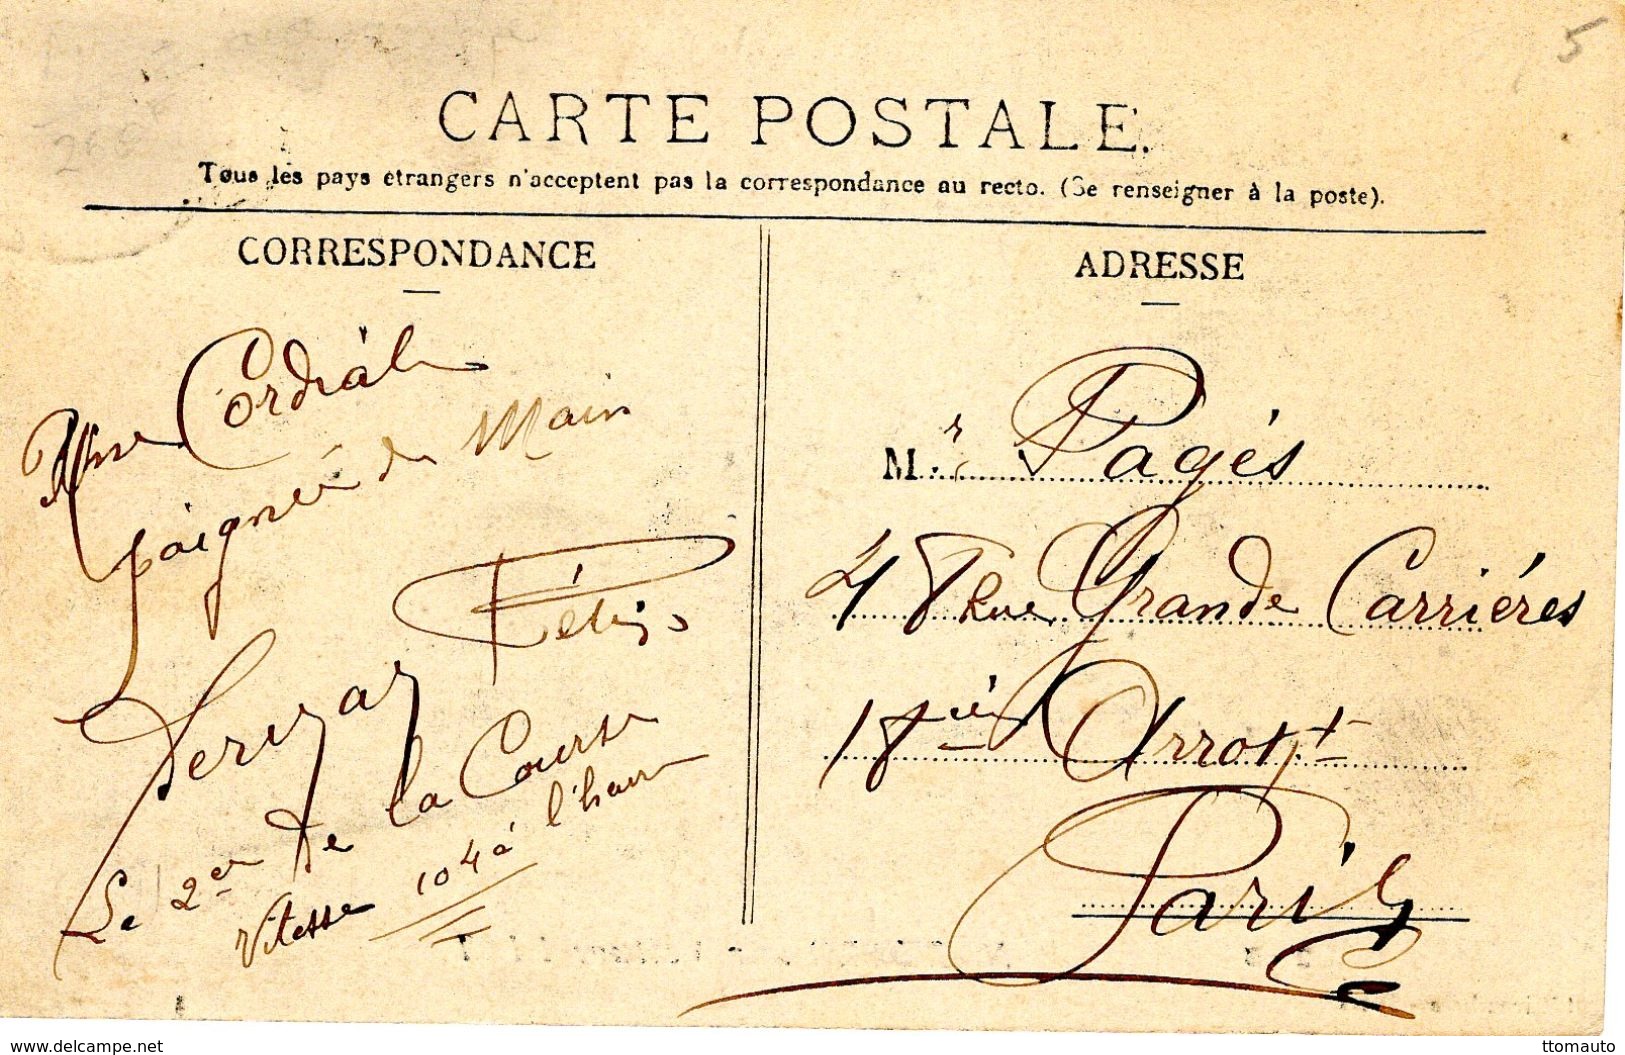 5
CARTE POSTALE.
Tous les pays étrangers n'acceptent pas la correspondance au recto. (Se renseigner à la poste).
CORRESPONDANCE
Une Cordiale
poignée de Main
Szisz
Le 2er de la Course
Vitesse 104 à l'heure
ADRESSE
Mr. Pagés
48 Rue Grande Carriéres
18ié Arrott
Paris
www.delcampe.net
ttomauto